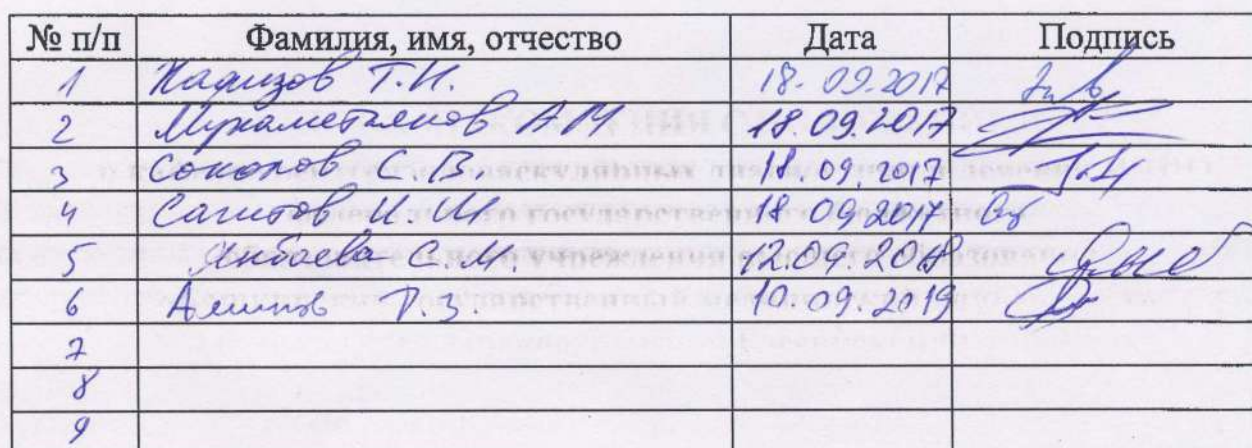 № п/п Фамилия, имя, отчество Дата Подпись
1 Нафизов Т.И. 18.09.2017
2 Мухаметзянов А.М. 18.09.2017
3 Соколов С.В. 18.09.2017
4 Сагитов И.Ш. 18.09.2017
5 С.М. 12.09.2018
6 Аминов Р.З. 10.09.2019
7
8
9